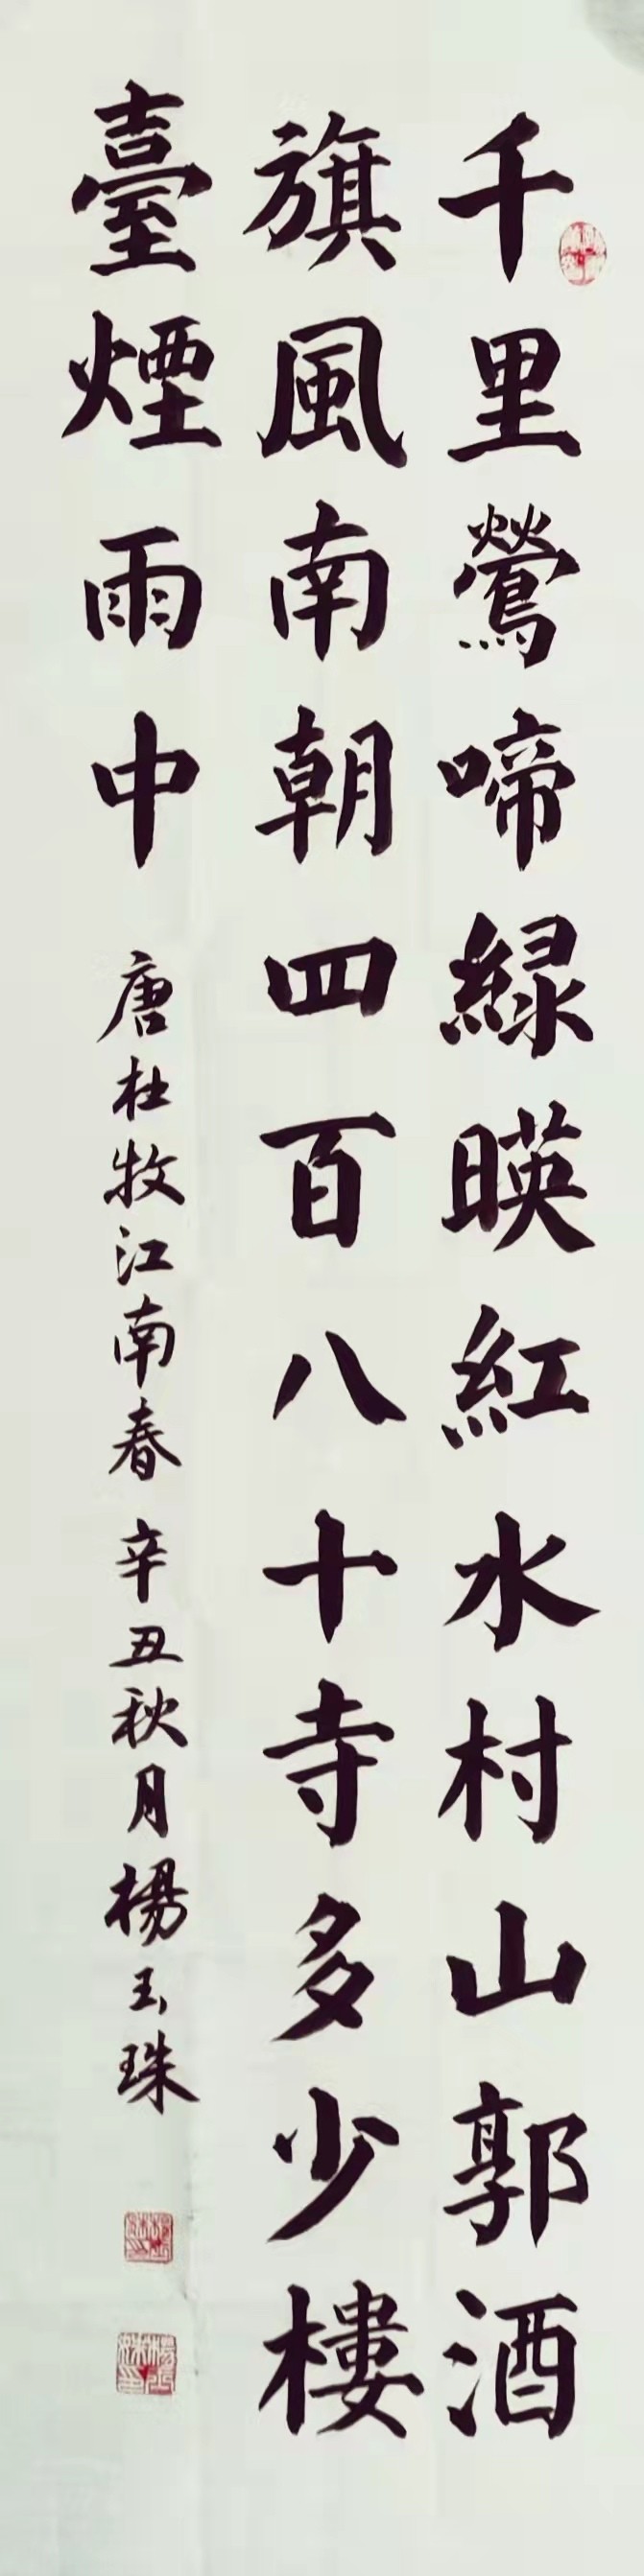 千里鶯啼緑暎紅水村山郭酒
旗風南朝四百八十寺多少樓
臺煙雨中
唐杜牧江南春 辛丑秋月楊玉珠